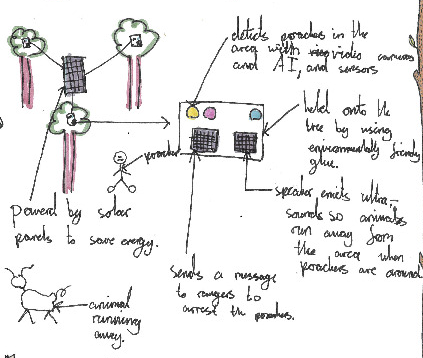 detects poachers in the
area with video cameras
and AI, and sensors
held onto the
tree by using
environmentally friendly
glue.
poacher
speaker emits ultra-
sounds so animals
run away from
the area when
poachers are around
powered by solar
panels to save energy.
sends a message
to rangers to
arrest the poachers.
animal
running
away.